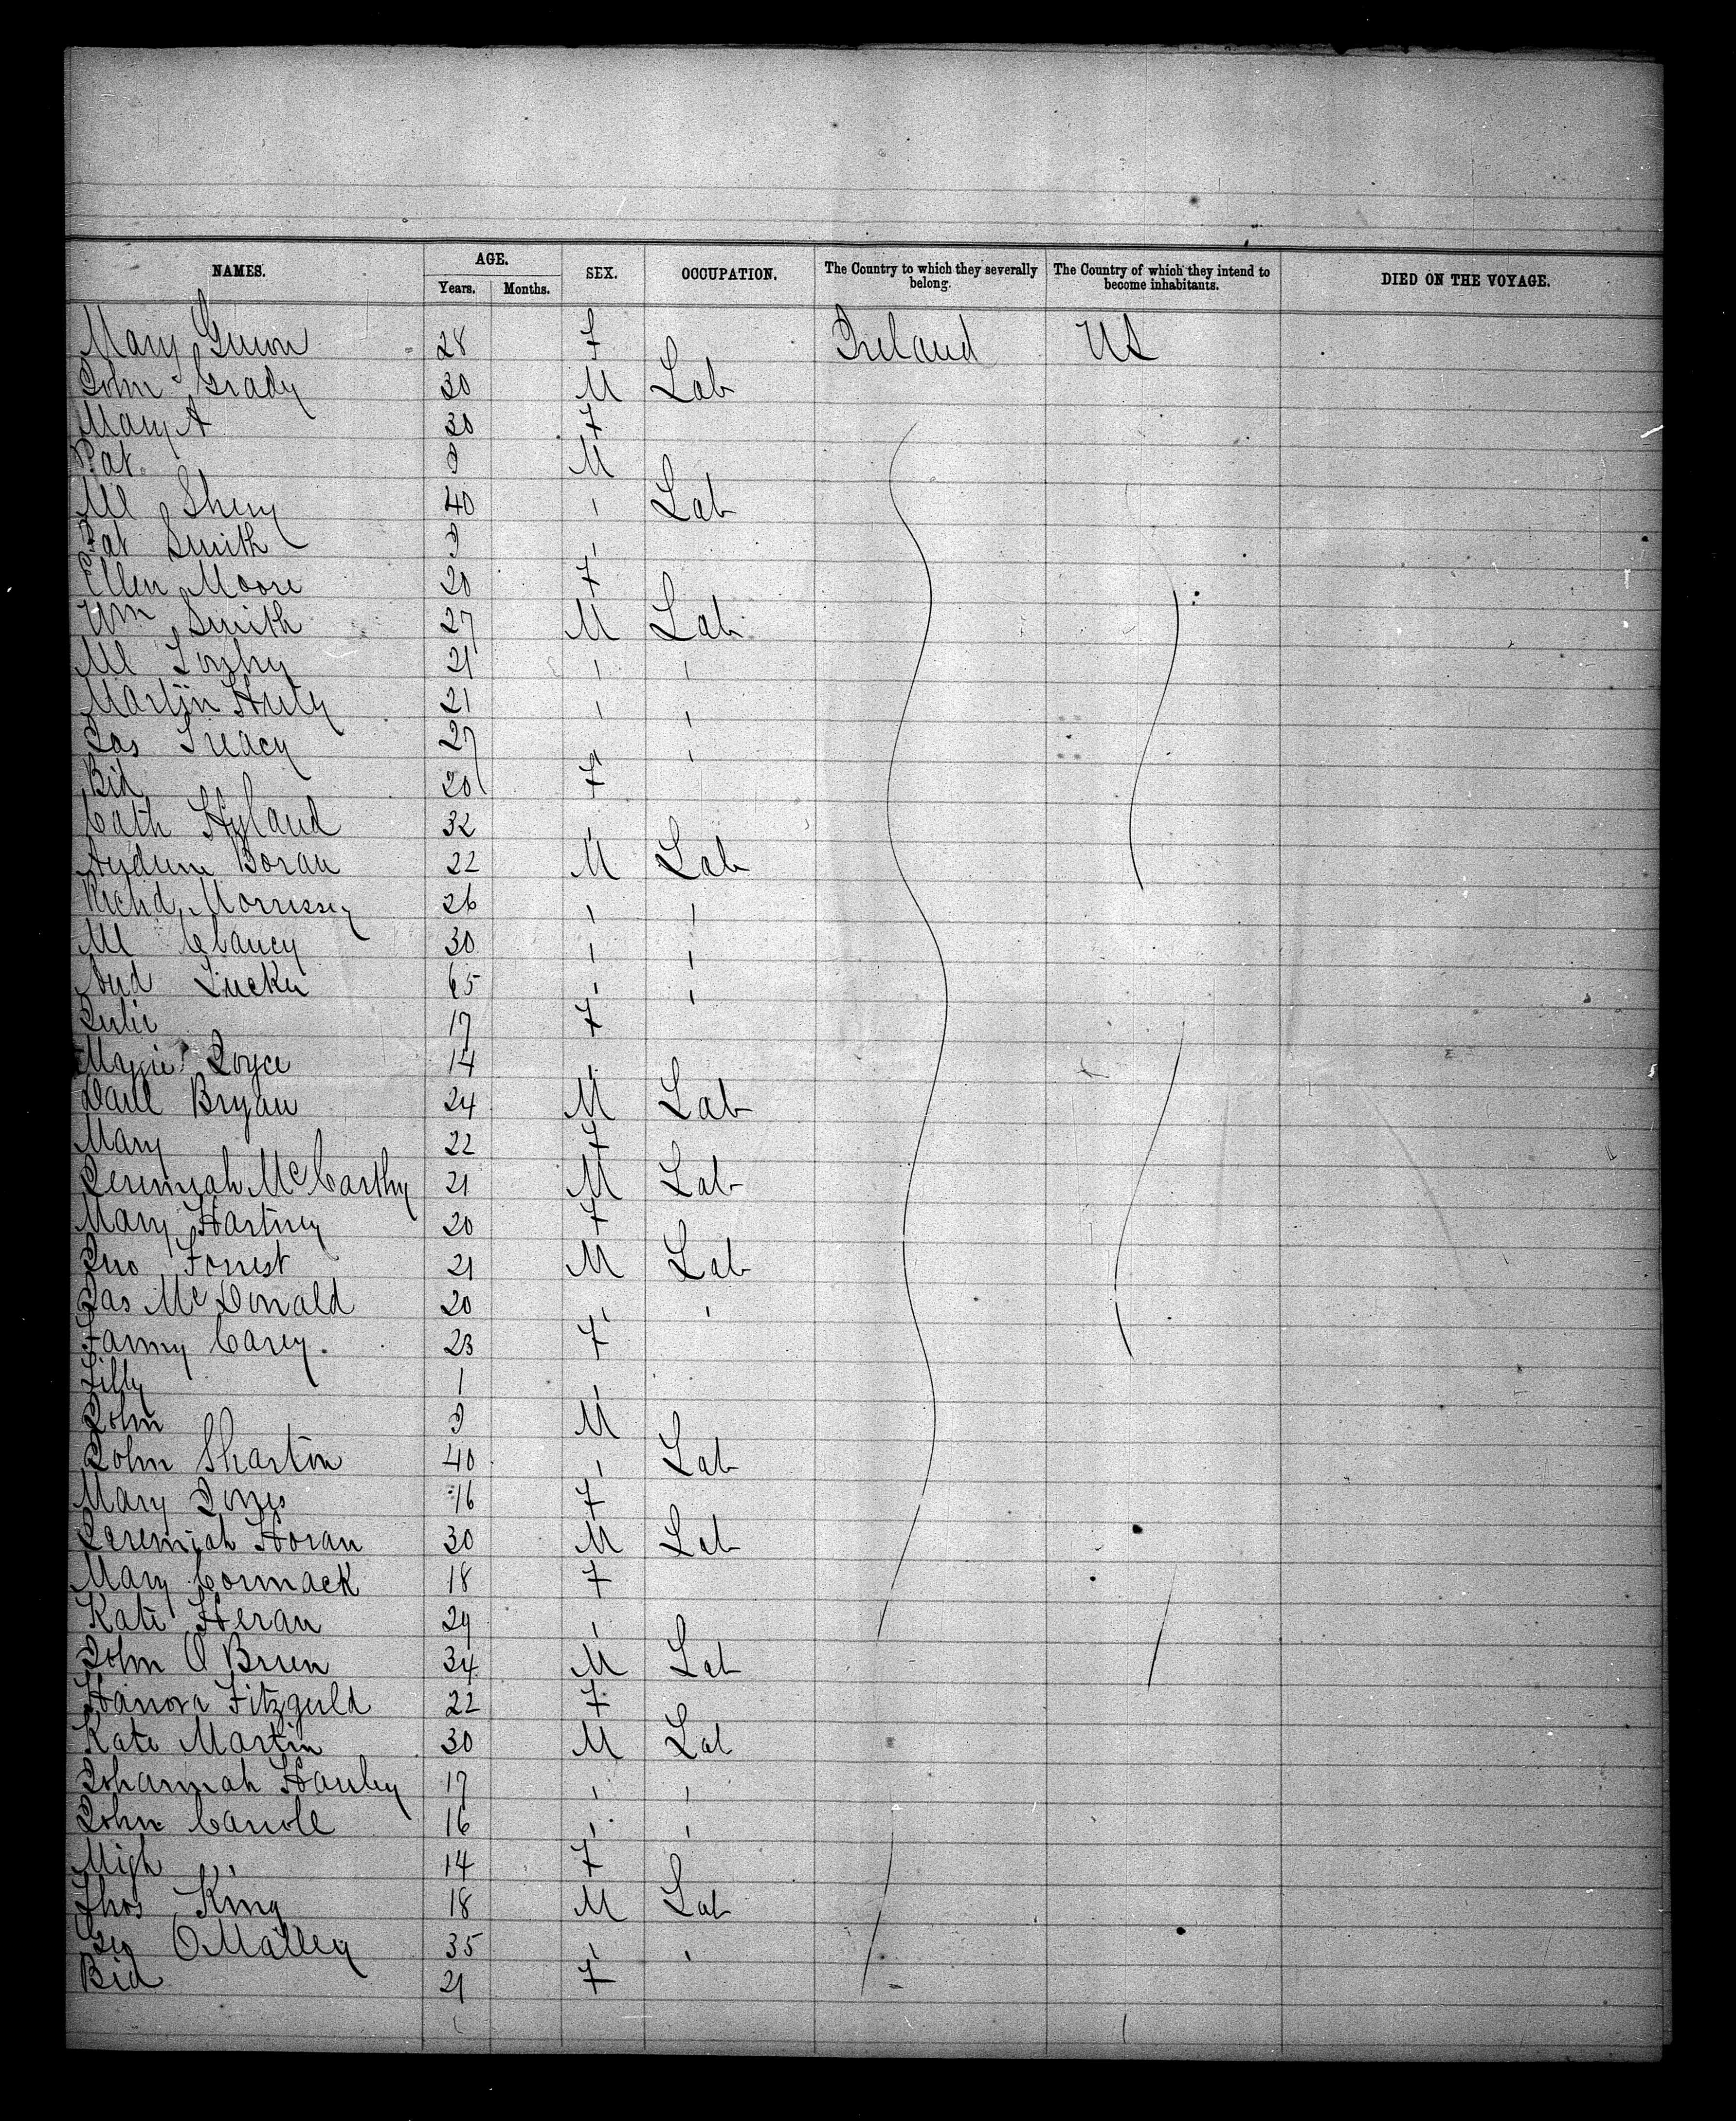 NAMES. AGE. SEX. OCCUPATION. The Country to which they severally belong. The Country of which they intend to become inhabitants. DIED ON THE VOYAGE.
Years. Months.
Mary 28 F Ireland US
John Grady 30 M Lab
Mary A 30 F
Pat. 9 M
Ml 40 " Lab
Pat Smith 9 "
Ellen Moore 20 F
Wm Smith 27 M Lab
Ml 21 " "
Martin 21 " "
Jas Treacy 27 " "
Bid 20 F
Cath Hyland 32 "
Boran 22 M Lab
Richd Morrissey 26 " "
Ml Clancy 30 " "
And Tucker 65 " "
Julie 17 F
Joyce 14 "
Danl Bryan 24 M Lab
Mary 22 F
Jeremiah McCarthy 21 M Lab
Mary Hartney 20 F
Jno Forrest 21 M Lab
Jas McDonald 20 " "
Fanny Carey. 23 F
Lilly 1 "
John 9 M
John Sharton 40 " Lab
Mary Jones 16 F
Jeremiah Horan 30 M Lab
Mary Cormack 18 F
Kate Heran 24 "
John O Brien 34 M Lab
Hanora Fitzgerld 22 F
Kate Martin 30 M Lab
Johannah Hanley 17 " "
John Carroll 16 " "
14 F
Thos King 18 M Lab
O Malley 35 " "
Bid 21 F